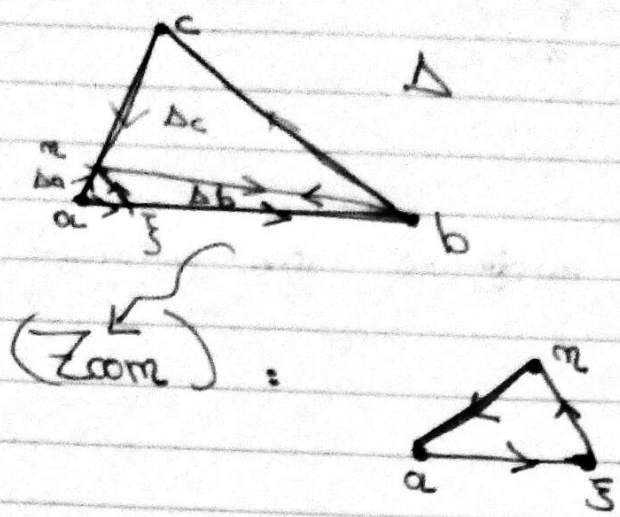 c
Δ
Δc
η
Δa
Δb
a
ξ
b
(Zoom) :
η
a
ξ